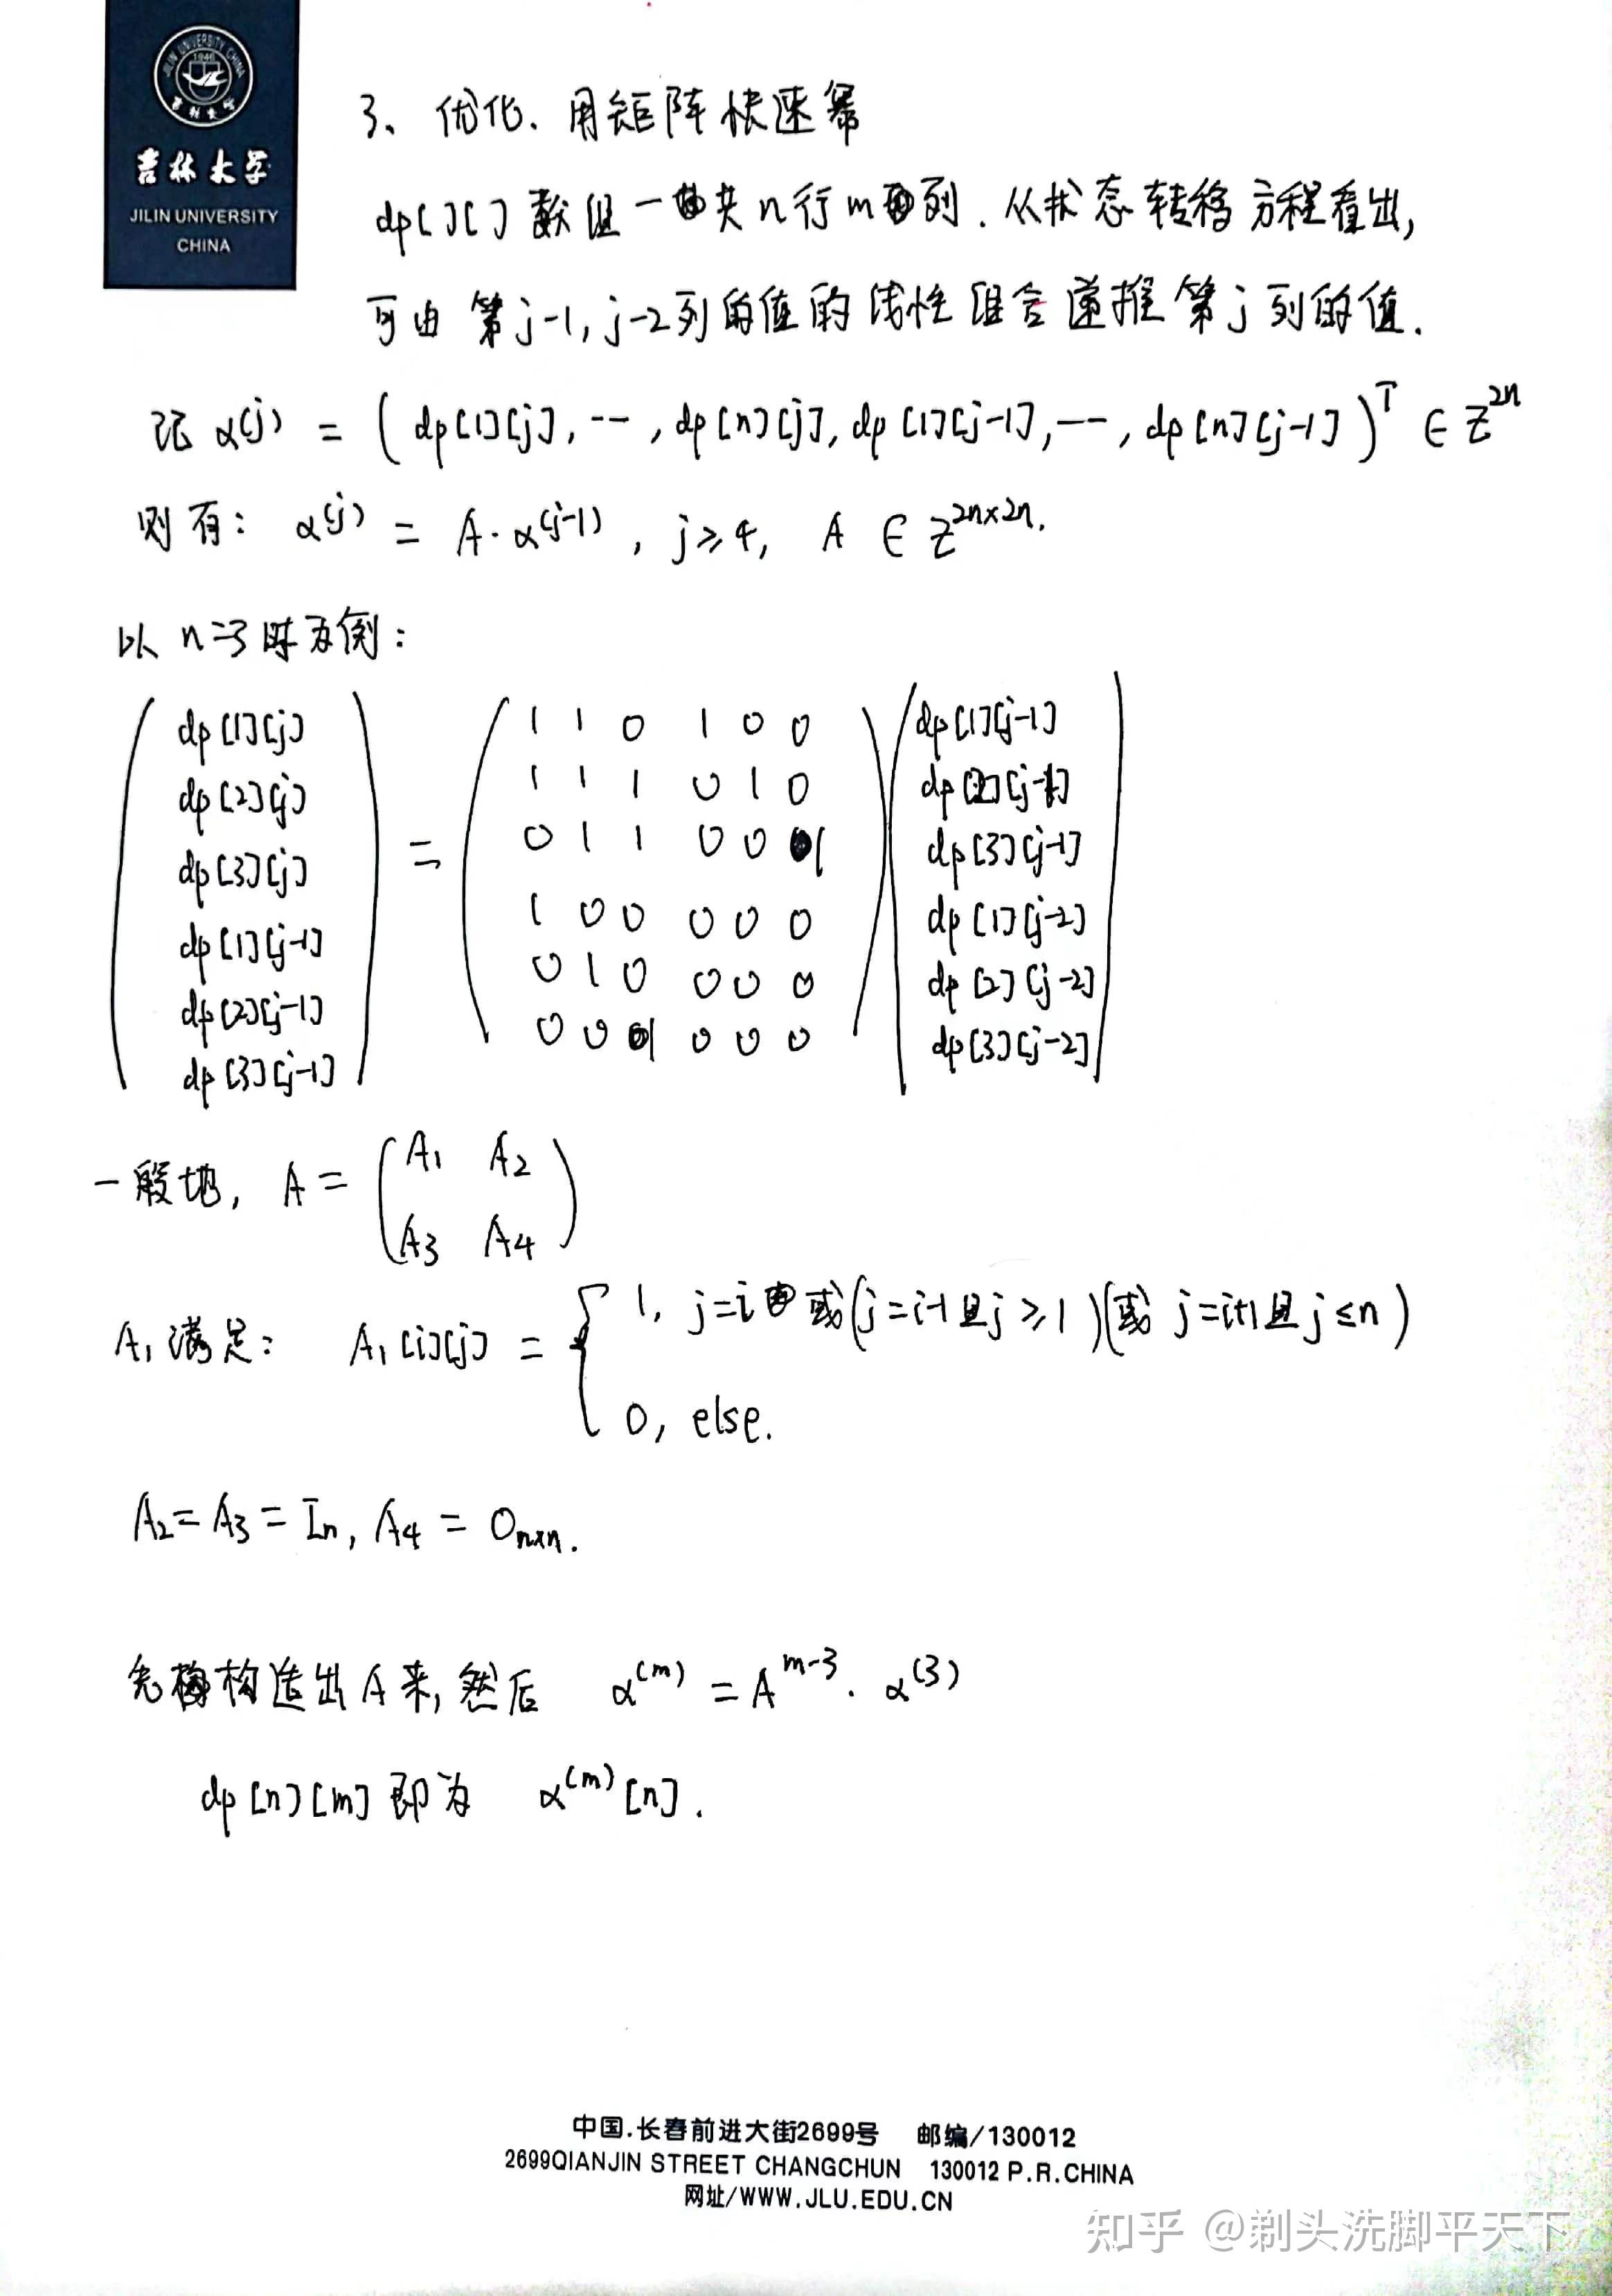 吉林大学
JILIN UNIVERSITY
CHINA
3、优化、用矩阵快速幂
dp[][]数组一共n行m列.从状态转移方程看出,
可由第j-1,j-2列的值的线性组合递推第j列的值.
记 α^(j) = (dp[1][j], --, dp[n][j], dp[1][j-1], --, dp[n][j-1])^T ∈ Z^2n
则有: α^(j) = A·α^(j-1), j≥4, A ∈ Z^2n×2n.
以n=3时为例:
dp[1][j] 1 1 0 1 0 0 dp[1][j-1]
dp[2][j] 1 1 1 0 1 0 dp[2][j-1]
dp[3][j] = 0 1 1 0 0 1 dp[3][j-1]
dp[1][j-1] 1 0 0 0 0 0 dp[1][j-2]
dp[2][j-1] 0 1 0 0 0 0 dp[2][j-2]
dp[3][j-1] 0 0 1 0 0 0 dp[3][j-2]
一般地, A = (A1 A2
A3 A4)
A1满足: A1[i][j] = { 1, j=i 或(j=i-1且j≥1)(或 j=i+1且j≤n)
0, else.
A2=A3=In, A4=On×n.
先构造出A来,然后 α^(m) = A^m-3 · α^(3)
dp[n][m]即为 α^(m)[n].
中国.长春前进大街2699号 邮编/130012
2699QIANJIN STREET CHANGCHUN 130012 P.R.CHINA
网址/WWW.JLU.EDU.CN
知乎 @剃头洗脚平天下